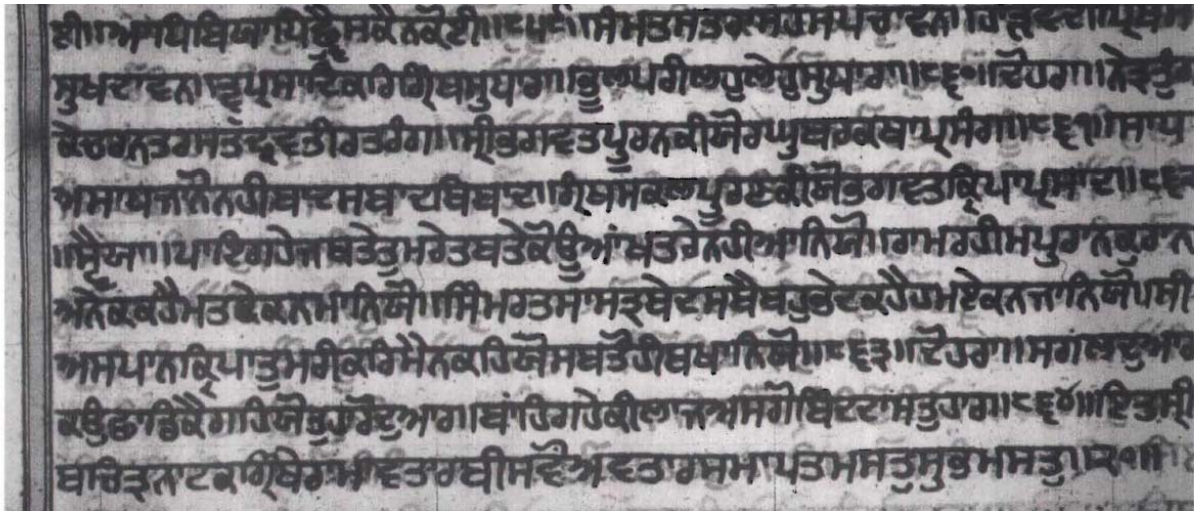 ਈ॥ਆਸਬਿਬਿਖਾਧਿਛ੍ਵੈਸਕੈਨਕੋਈ॥੮੫੯॥ਸੰਮਤਸਤ੍ਰਹਸਹਸਪਚਾਵਨ॥ਹਾੜਵਦੀ॥ਪ੍ਰਿਥਮ
ਸੁਖਦਾਵਨ॥ਤ੍ਵਪ੍ਰਸਾਦਿਕਰਿਗ੍ਰੰਥਸੁਧਾਰਾ॥ਭੂਲਪਰੀਲਹੁਲੇਹੁਸੁਧਾਰਾ॥੮੬੦॥ਦੋਹਰਾ॥ਨੇਤ੍ਰਤੁੰਗ
ਕੇਚਰਨਤਰਸਤਦ੍ਰਵਤੀਰਤਰੰਗ॥ਸ੍ਰੀਭਗਵਤਪੂਰਨਕੀਯੋਰਘੁਬਰਕਥਾਪ੍ਰਸੰਗ॥੮੬੧॥ਸਾਧ
ਅਸਾਧਜਾਨੋਨਹੀਬਾਦਸਬਾਦਬਿਬਾਦ॥ਗ੍ਰੰਥਸਕਲਪੂਰਣਕੀਯੋਭਗਵਤਕ੍ਰਿਪਾਪ੍ਰਸਾਦ॥੮੬੨
॥ਸ੍ਵੈਯਾ॥ਪਾਇਗਹੇਜਬਤੇਤੁਮਰੇਤਬਤੇਕੋਊਆਂਖਤਰੇਨਹੀਆਨਿਯੋ॥ਰਾਮਰਹੀਮਪੁਰਾਨਕੁਰਾਨ
ਅਨੇਕਕਹੈਮਤਏਕਨਮਾਨਿਯੋ॥ਸਿੰਮਰਤਸਾਸਤ੍ਰਬੇਦਸਬੈਬਹੁਭੇਦਕਹੈਹਮਏਕਨਜਾਨਿਯੋ॥ਸ੍ਰੀ
ਅਸਪਾਨਕ੍ਰਿਪਾਤੁਮਰੀਕਰਿਮੈਨਕਹਿਯੋਸਬਤੋਹੀਬਖਾਨਿਯੋ॥੮੬੩॥ਦੋਹਰਾ॥ਸਗਲਦੁਆਰ
ਕਉਛਾਡਿਕੈਗਹਿਯੋਤੁਹਾਰੋਦੁਆਰ॥ਬਾਂਹਿਗਹੇਕੀਲਾਜਅਸਗੋਬਿੰਦਦਾਸਤੁਹਾਰ॥੮੬੪॥ਇਤਿਸ੍ਰੀ
ਬਚਿਤ੍ਰਨਾਟਕਗ੍ਰੰਥੇਰਾਮਾਵਤਾਰਬੀਸਵੋਅਵਤਾਰਸਮਾਪਤਮਸਤੁਸੁਭਮਸਤੁ॥੨੦॥